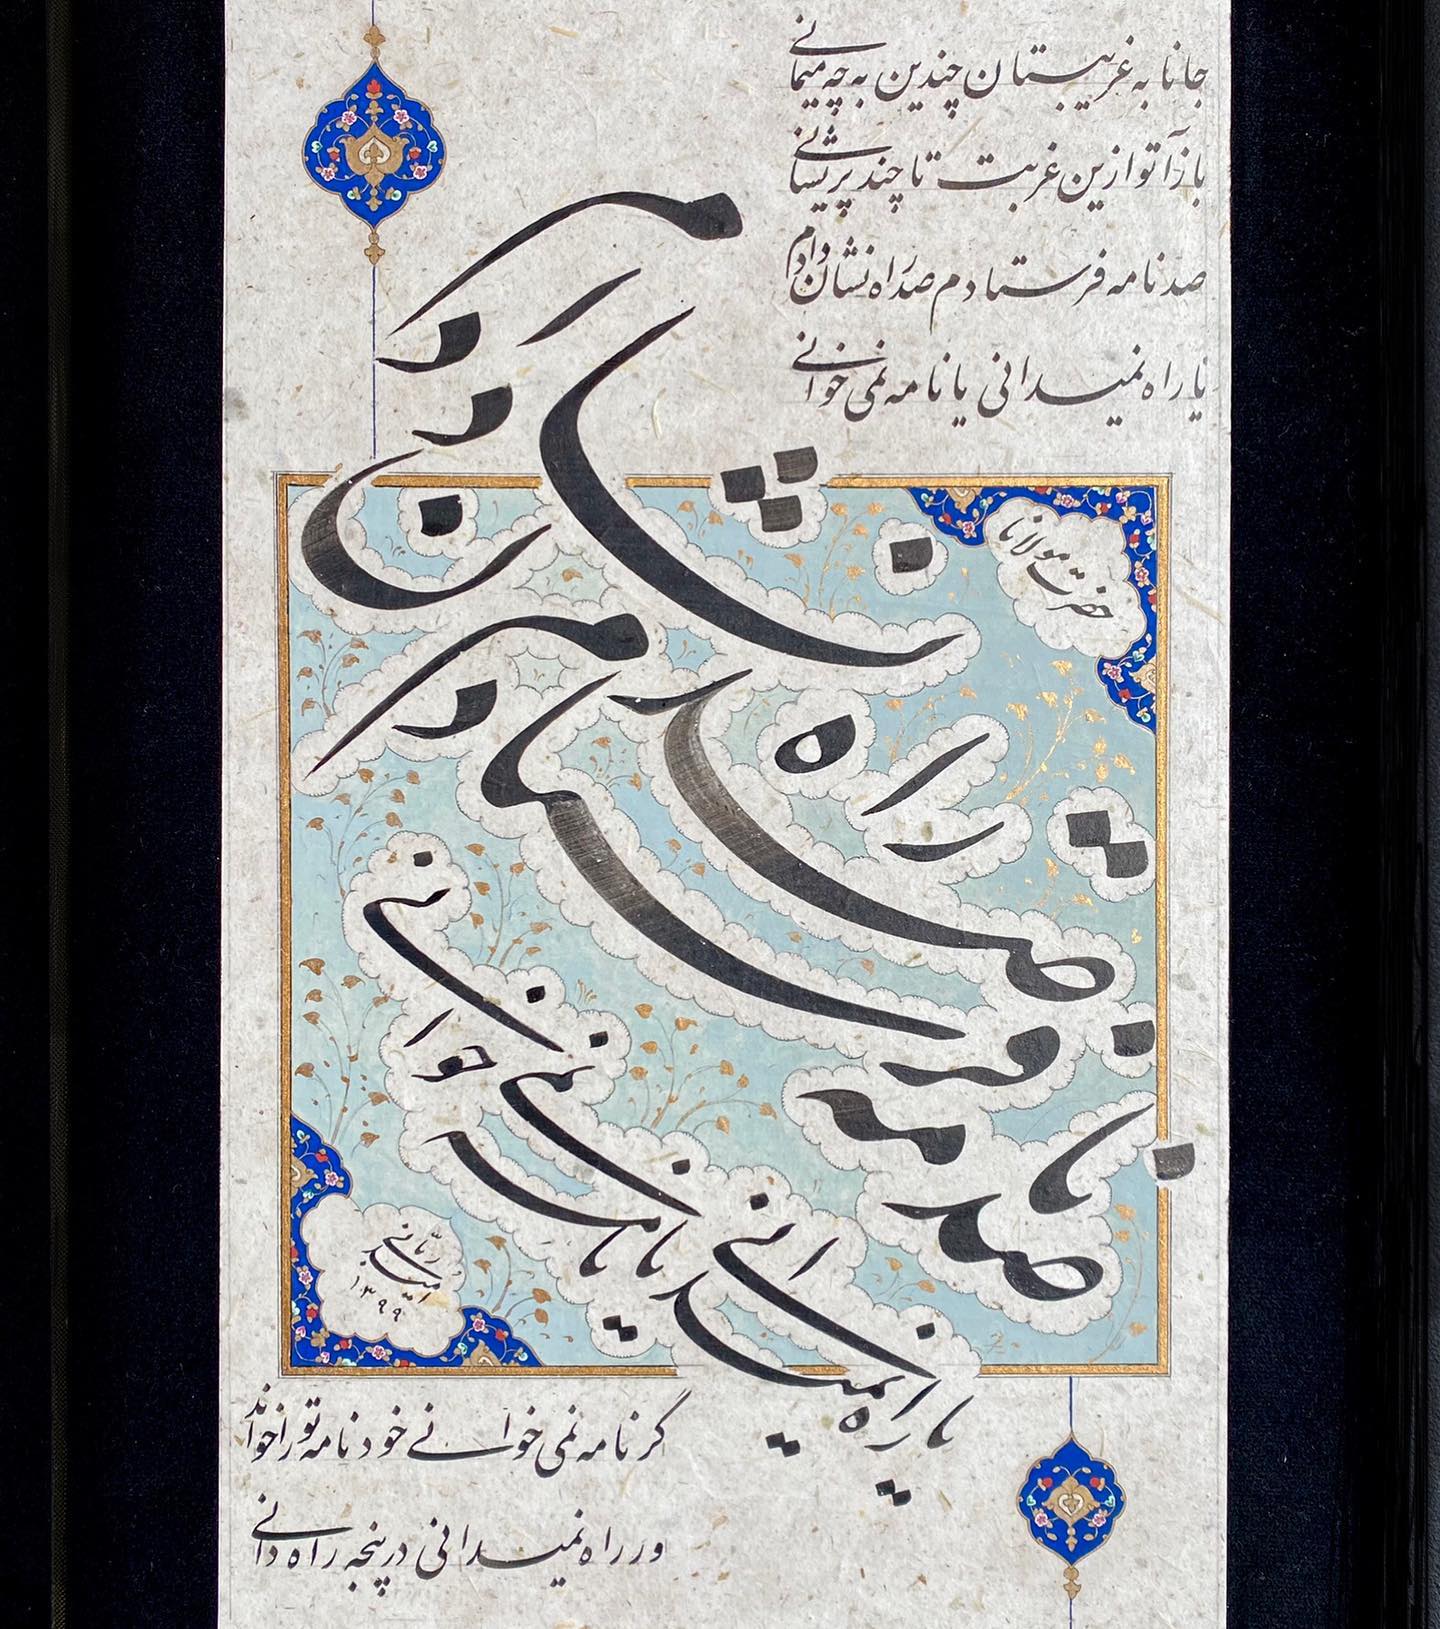 جانا به غریبستان چندین به چه میمانی
بازآ تو ازین غربت تا چند پریشانی
صد نامه فرستادم صد راه نشان دادم
یا راه نمیدانی یا نامه نمی خوانی
حضرت مولانا
صد نامه فرستادم
صد راه نشان دادم
یا راه نمیدانی
یا نامه نمی خوانی
امید ربانی
۱۳۹۹
گر نامه نمی خوانی خود نامه تو را خواند
ور راه نمیدانی در پنجه ره دانی